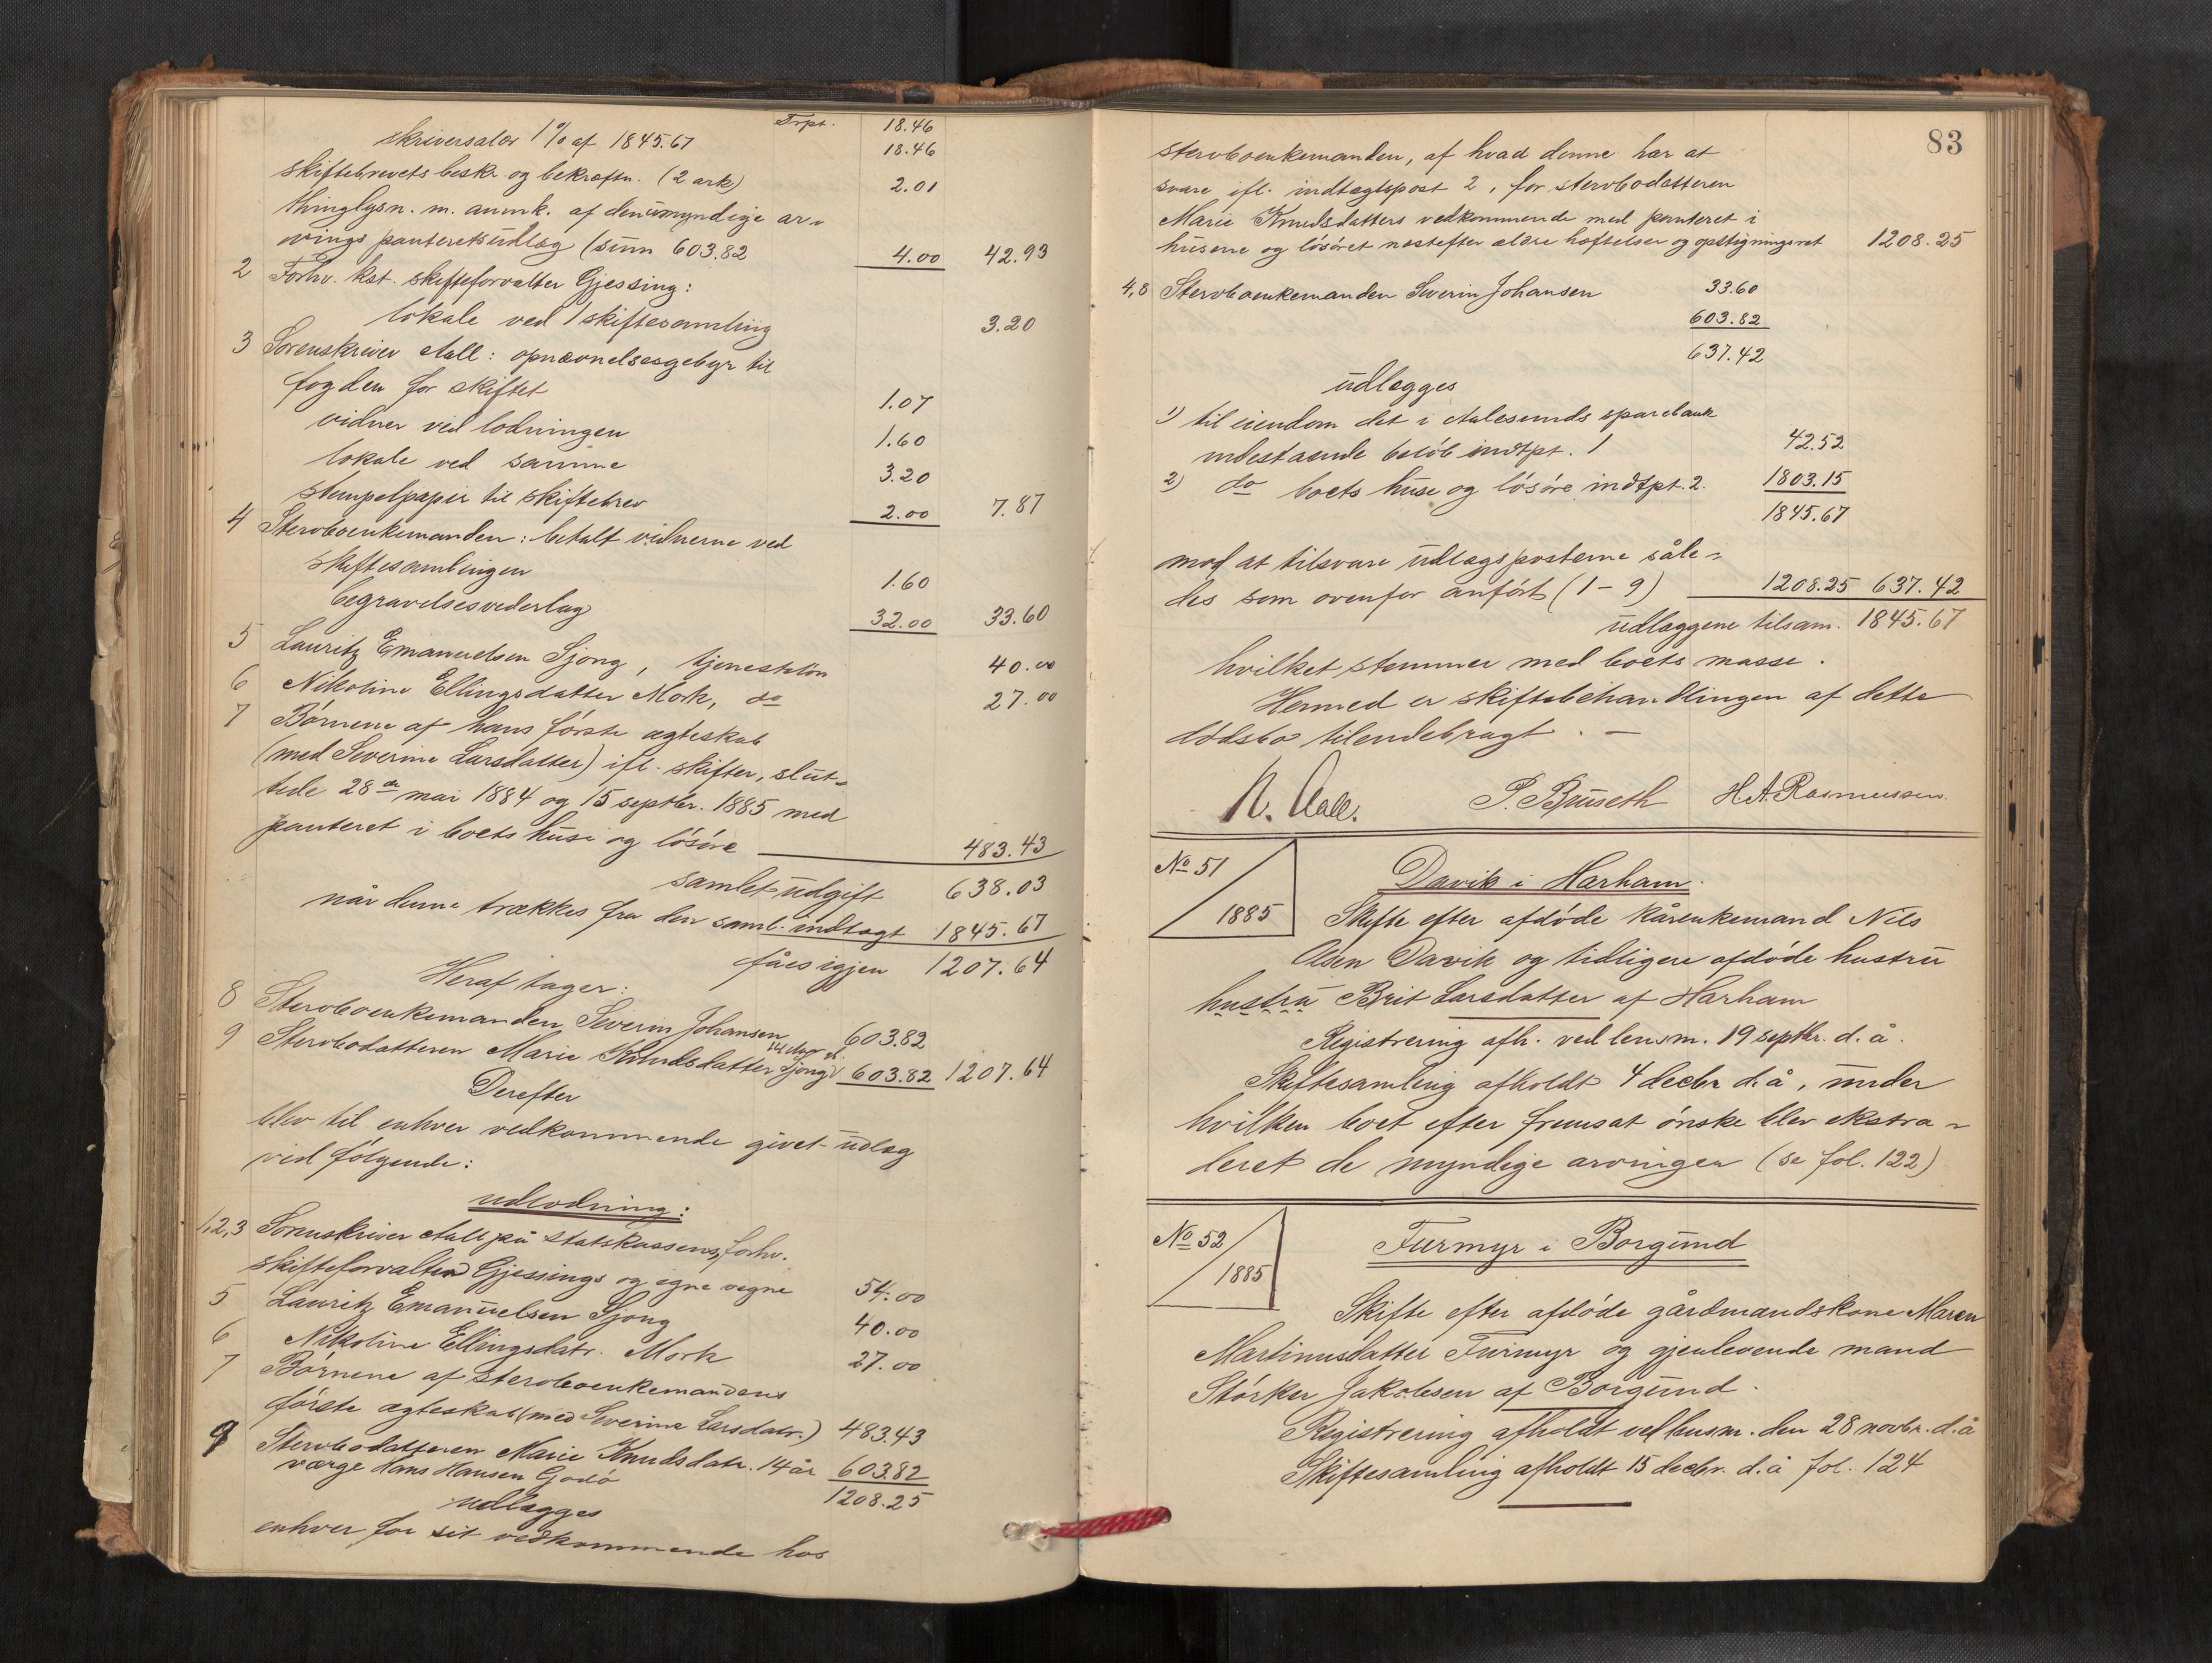 Trpt. 18.46
skriversalær 1% af 1845.67 18.46
skiftebrevets beskr. og bekræftn. (2 ark) 2.01
thinglysn. m. anmk. af den umyndige ar-
vings panteretsudlæg (sum 603.82 4.00 42.93
2 Forhv. kst. skifteforvalter Gjessing:
lokale ved 1 skiftesamling 3.20
3 Sorenskriver Aall: opnævnelsesgebyr til
fogden for skiftet 1.07
vidner ved lodningen 1.60
lokale ved samme 3.20
stempelpapir til skiftebrev 2.00 7.87
4 Stervboenkemanden: betalt vidnerne ved
skiftesamlingen 1.60
begravelsesvederlag 32.00 33.60
5 Lauritz Emanuelsen Sjong, tjenestelön 40.00
6 Nikoline Ellingsdatter Mork, do 27.00
7 Börnene af hans förste ægteskab
(med Severine Larsdatter) ifl. skifter, slut-
tede 28de mai 1884 og 15 septbr. 1885 med
panteret i boets huse og lösöre 483.43
samlet udgift 638.03
når denne trækkes fra den saml. indtægt 1845.67
fåes igjen 1207.64
Heraf tager:
8 Stervboenkemanden Severin Johansen 603.82
9 Stervbodatteren Marie Knudsdatter Sjong 603.82 1207.64
Derefter
blev til enhver vedkommende givet udlæg
ved fölgende:
udlodning:
1,2,3 Sorenskriver Aall på statskassens, forhv.
skifteforvalter Gjessings og egne vegne 54.00
5 Lauritz Emanuelsen Sjong 40.00
6 Nikoline Ellingsdatr. Mork 27.00
7 Börnene af stervboenkemandens
förste ægteskab (med Severine Larsdatr.) 483.43
9 Stervbodatteren Marie Knudsdatr. 14 år 603.82
værge Hans Hansen Godö 1208.25
udlægges
enhver for sit vedkommende hos
83
stervboenkemanden, af hvad denne har at
svare ifl. indtægtspost 2, for stervbodatteren
Marie Knudsdatters vedkommende med panteret i
husene og lösöret næstefter ældre hæftelser og opstigningsret 1208.25
4,8 Stervboenkemanden Severin Johansen 33.60
603.82
637.42
udlægges
1) til eiendom det i Aalesunds sparebank
indestaaende belöb indtpt. 1 42.52
2) do boets huse og lösöre indtpt. 2. 1803.15
1845.67
mod at tilsvare udlægsposterne såle-
des som ovenfor anfört (1-9) 1208.25 637.42
udlæggene tilsam. 1845.67
hvilket stemmer med boets masse.
Hermed er skiftebehandlingen af dette
dödsbo tilendebragt. —
N. Aall. P. Bruseth H.A. Rasmussen.
No 51
1885
Davik i Harham.
Skifte efter afdöde kårenkemand Nils
Olsen Davik og tidligere afdöde hustru
hustru Brit Larsdatter af Harham
Registrering afh. ved lensm. 19 septbr. d.å.
Skiftesamling afholdt 4 decbr d.å, under
hvilken boet efter fremsat önske blev ekstra-
deret de myndige arvinger (se fol. 122)
No 52
1885
Furmyr i Borgund
Skifte efter afdöde gårdmandskone Maren
Martinusdatter Furmyr og gjenlevende mand
Störker Jakobsen af Borgund.
Registrering afholdt ved lensm. den 28 novbr. d.å
Skiftesamling afholdt 15 decbr. d.å fol. 124